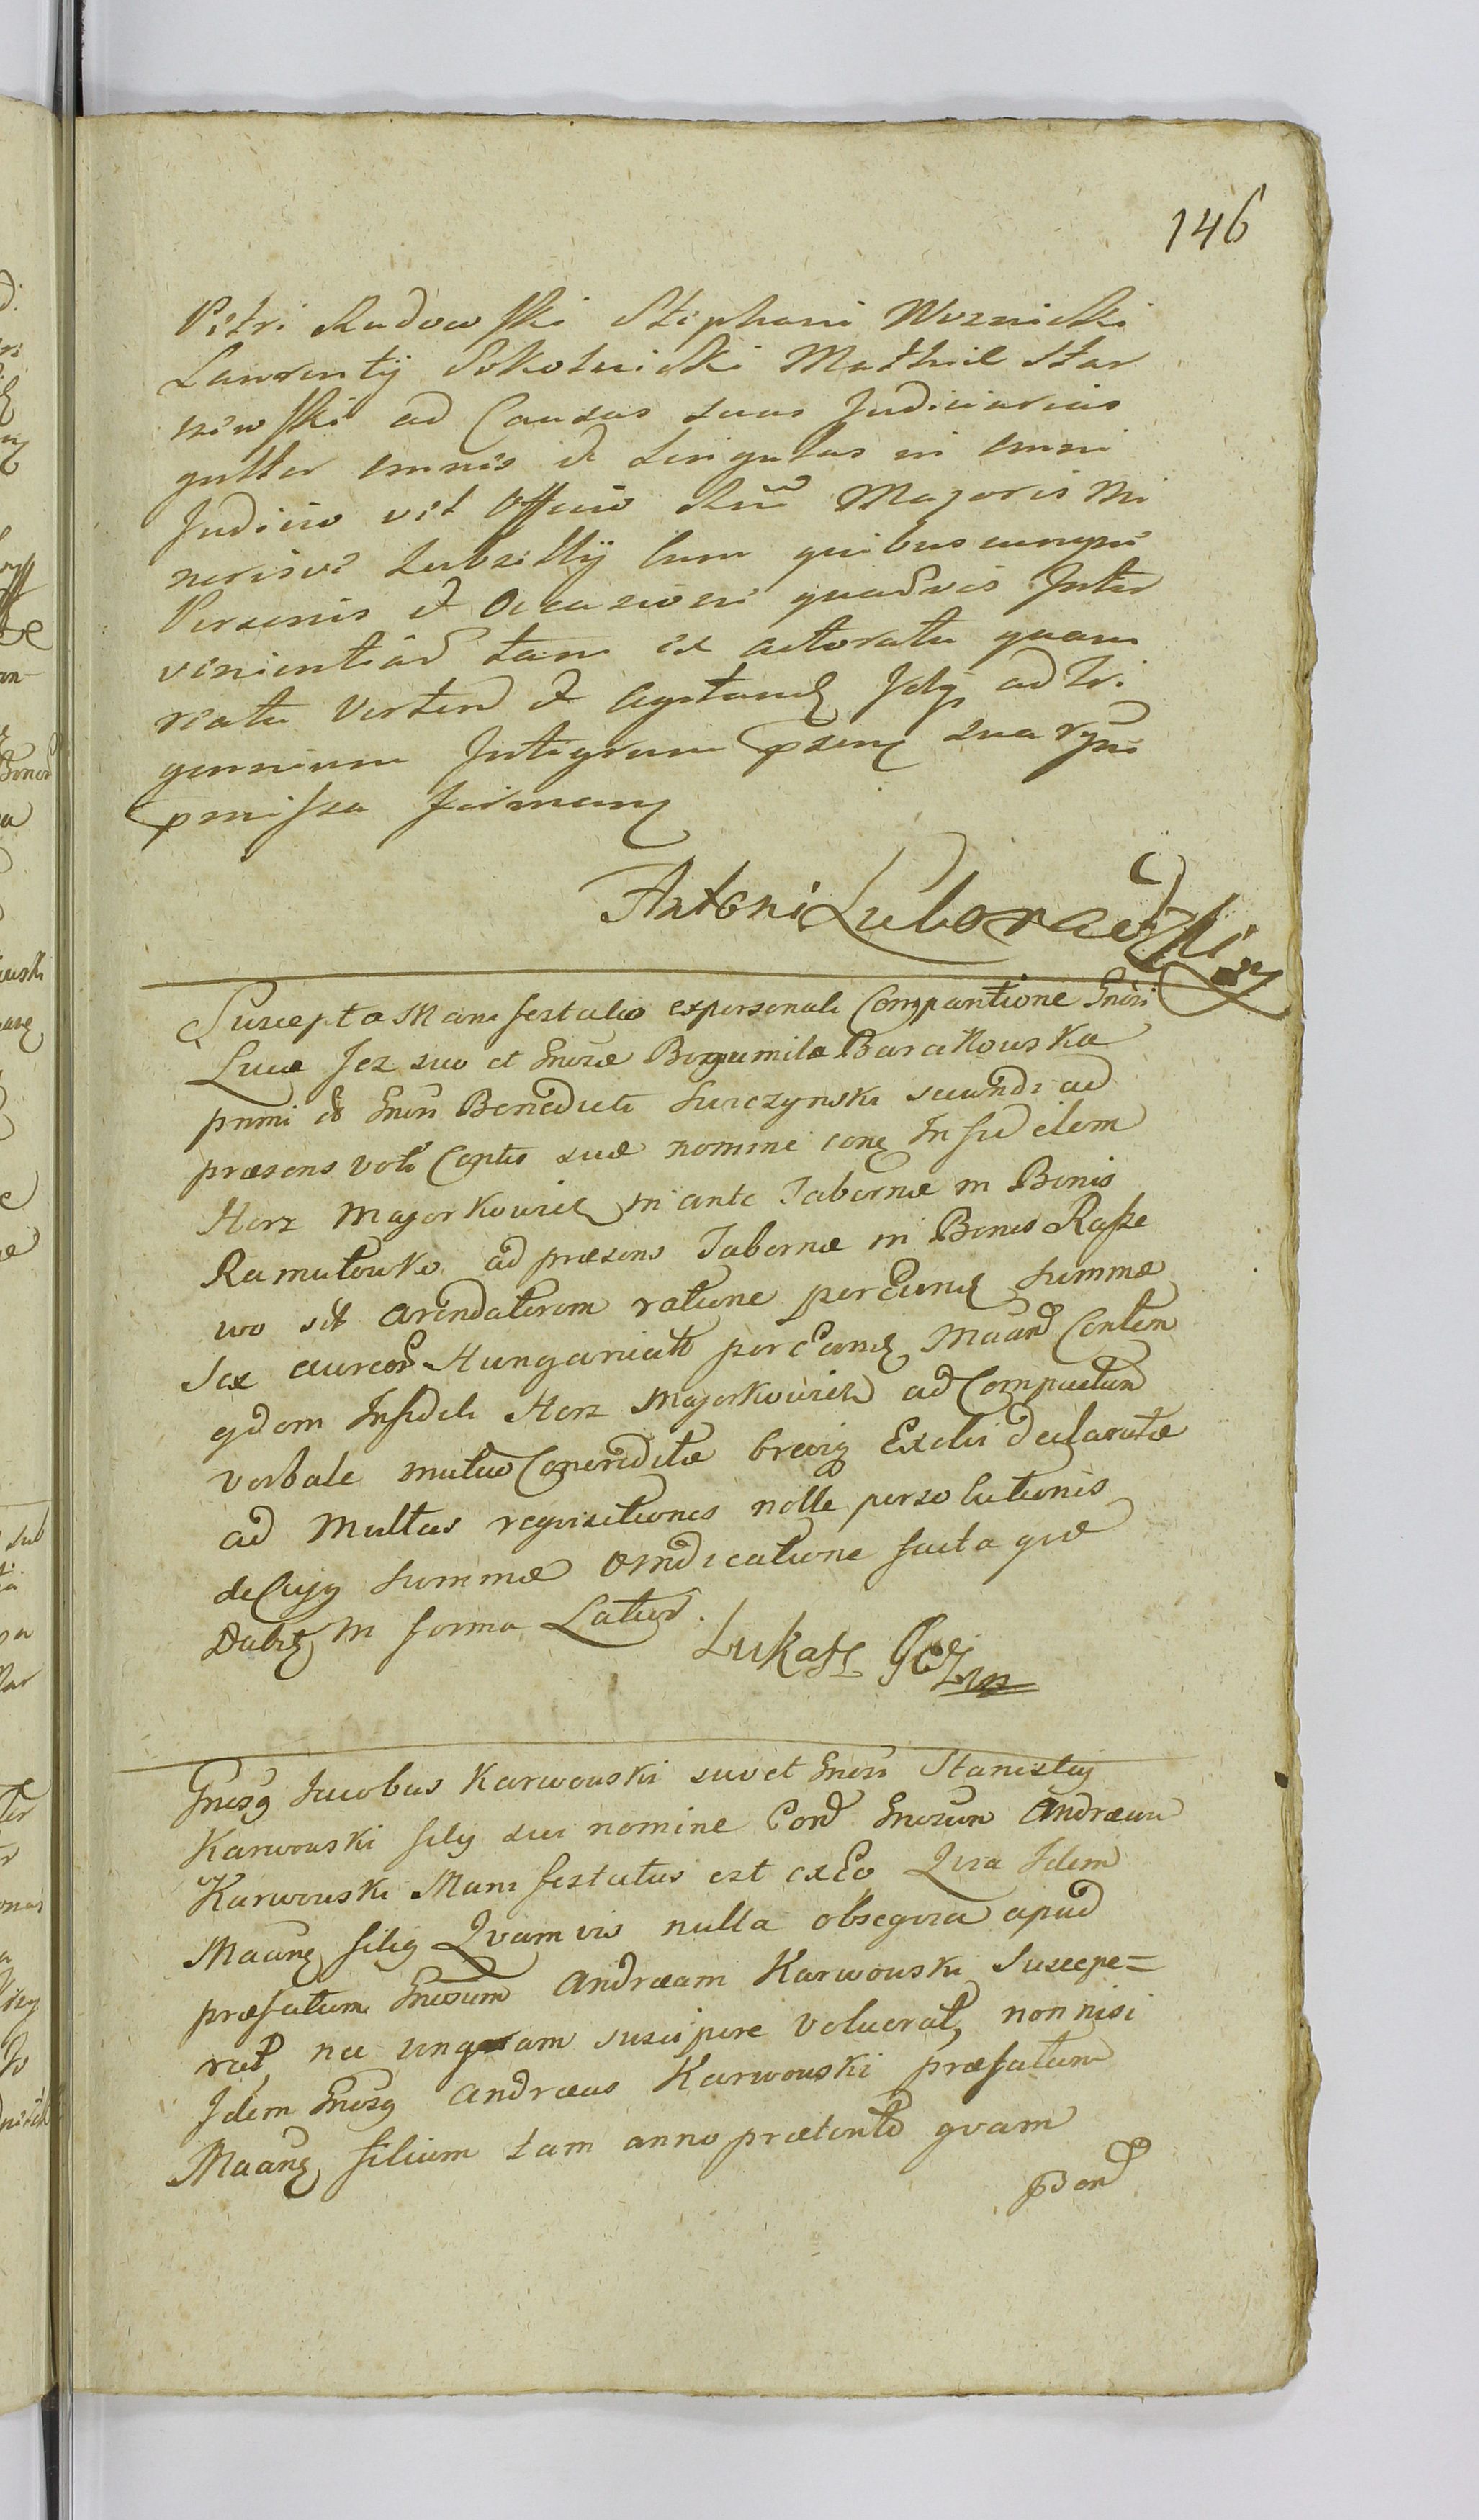 146
Petri Rudowski Stephani Woznicki
Laurentij Sokolnicki Mathiæ Star
niewski ad Causas suas Judiciarias
gntter omnes et singulas in omni
Judicio vel Officio Rni Majoris Mi
norisve Subsellij cum quibuscunque
Personis et Occasione quadvis Inter
venientiad tam ex actoratu quam
reatu Vertend et Agitand Idq ad Tri
gennium Integrum psenq sua rysi
pmissa firmanq
Antoni Luboradzki mp
Suscepta Manifestatio ex personali Comparitione Gnosi
Lucæ Jez suo et Gnosæ Bogumilæ Barcikouska
primi et Gnosi Benedicti Surczynski secundi ad
præsens voti Cortis suæ nomine conq Infidelem
Herz Majorkowicz in ante Tabernæ in Bonis
Ramutowko ad præsens Tabernæ in Bonis Rasze
wo sit arendatorem ratione percunq summæ
sex aureor Hungaricalt percunq Maand Contem
qdem Infideli Herz Majorkowicz ad Compactum
verbale mutuo Concreditæ breviq Exolvi declaratæ
ad Multas requisitiones nolle persolutionis
de Cujq summæ vindicatione facta quæ
Dabitq in forma Latior.
Lukasz Jeż mp
Gnosq Jacobus Karwouski suo et Gnosi Stanislaij
Karwouski filij sui nomine Cord Gnosum Andræam
Karwouski Manifestatus est ex Eo Quia Idem
Maanq filiq Quamvis nulla obseqvia apud
præfatum Gnosum Andræam Karwouski Suscepe=
rat, nec unqvam suscipere voluerat, non nisi
Idem Gnosq Andræas Karwouski præfatum
Maanq filium tam anno prætento qvam